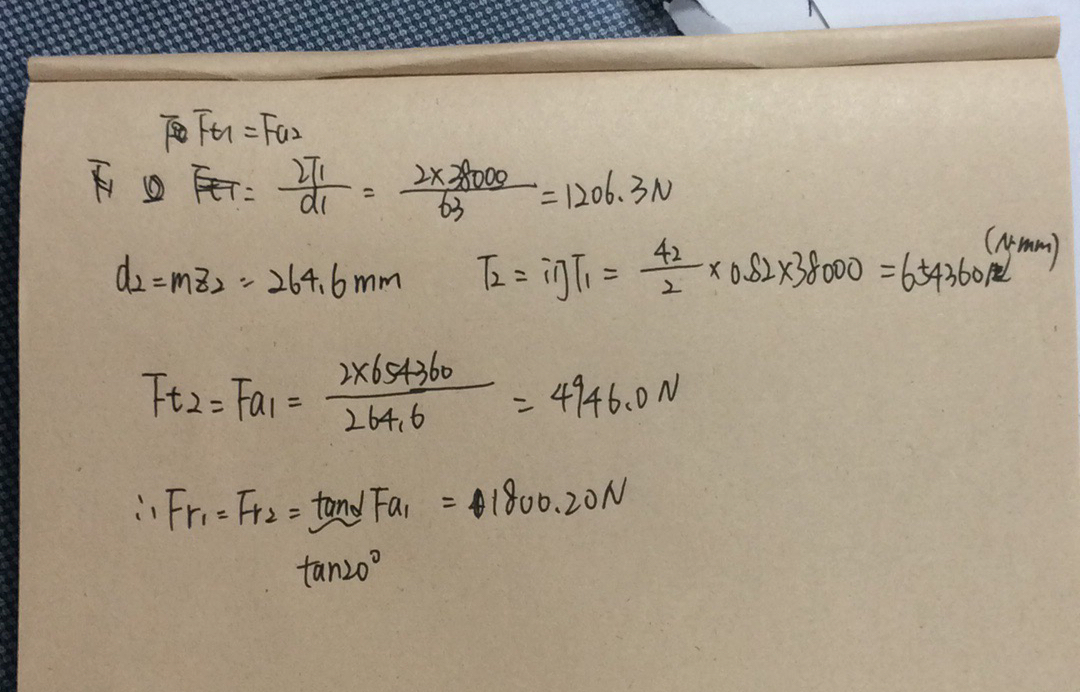 Ft1 = Fa2
= 2T1/d1 = 2×38000/63 = 1206.3N
d2 = mz2 = 264.6mm T2 = iηT1 = 42/2 × 0.82×38000 = 654360 (N·mm)
Ft2 = Fa1 = 2×654360/264.6 = 4946.0N
∴ Fr1 = Fr2 = tanα Fa1 = 1800.20N
tan20°